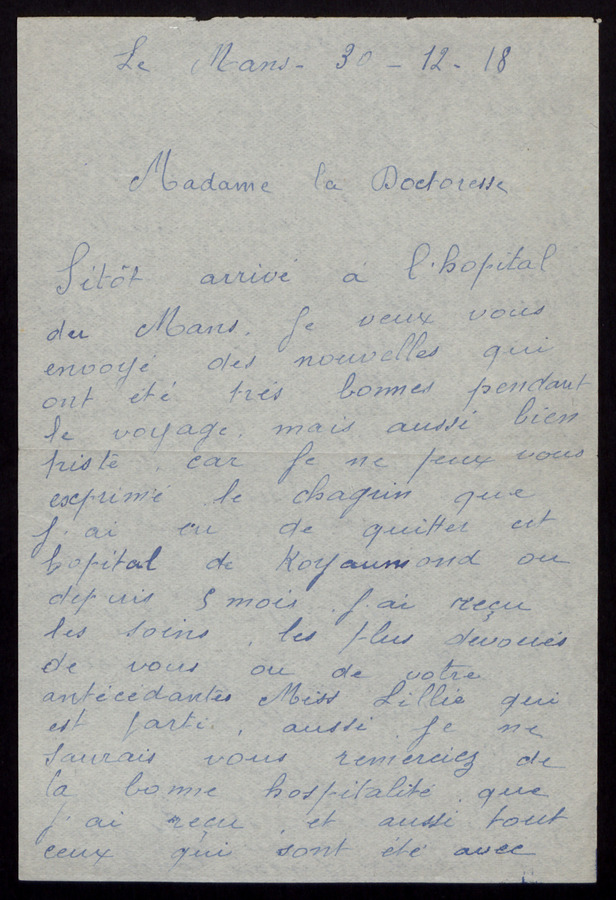 Le Mans - 30 - 12 - 18
Madame la Doctoresse
Sitôt arrivé a l'hopital
du Mans. Je veux vous
envoyé des nouvelles qui
ont été trés bonnes pendant
le voyage. mais aussi bien
triste, car Je ne peux vous
exprimé le chagrin que
J'ai eu de quitter cet
hopital de Royaumond ou
depuis 5 mois J'ai reçu
les soins, les plus devoués
de vous ou de votre
antécedantes Miss Lillie qui
est parti, aussi Je ne
saurais vous remerciez de
la bonne hospitalité que
J'ai reçu, et aussi tout
ceux qui sont été avec